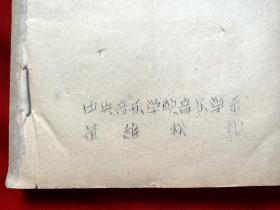 中央音乐学院音乐学系
董維松